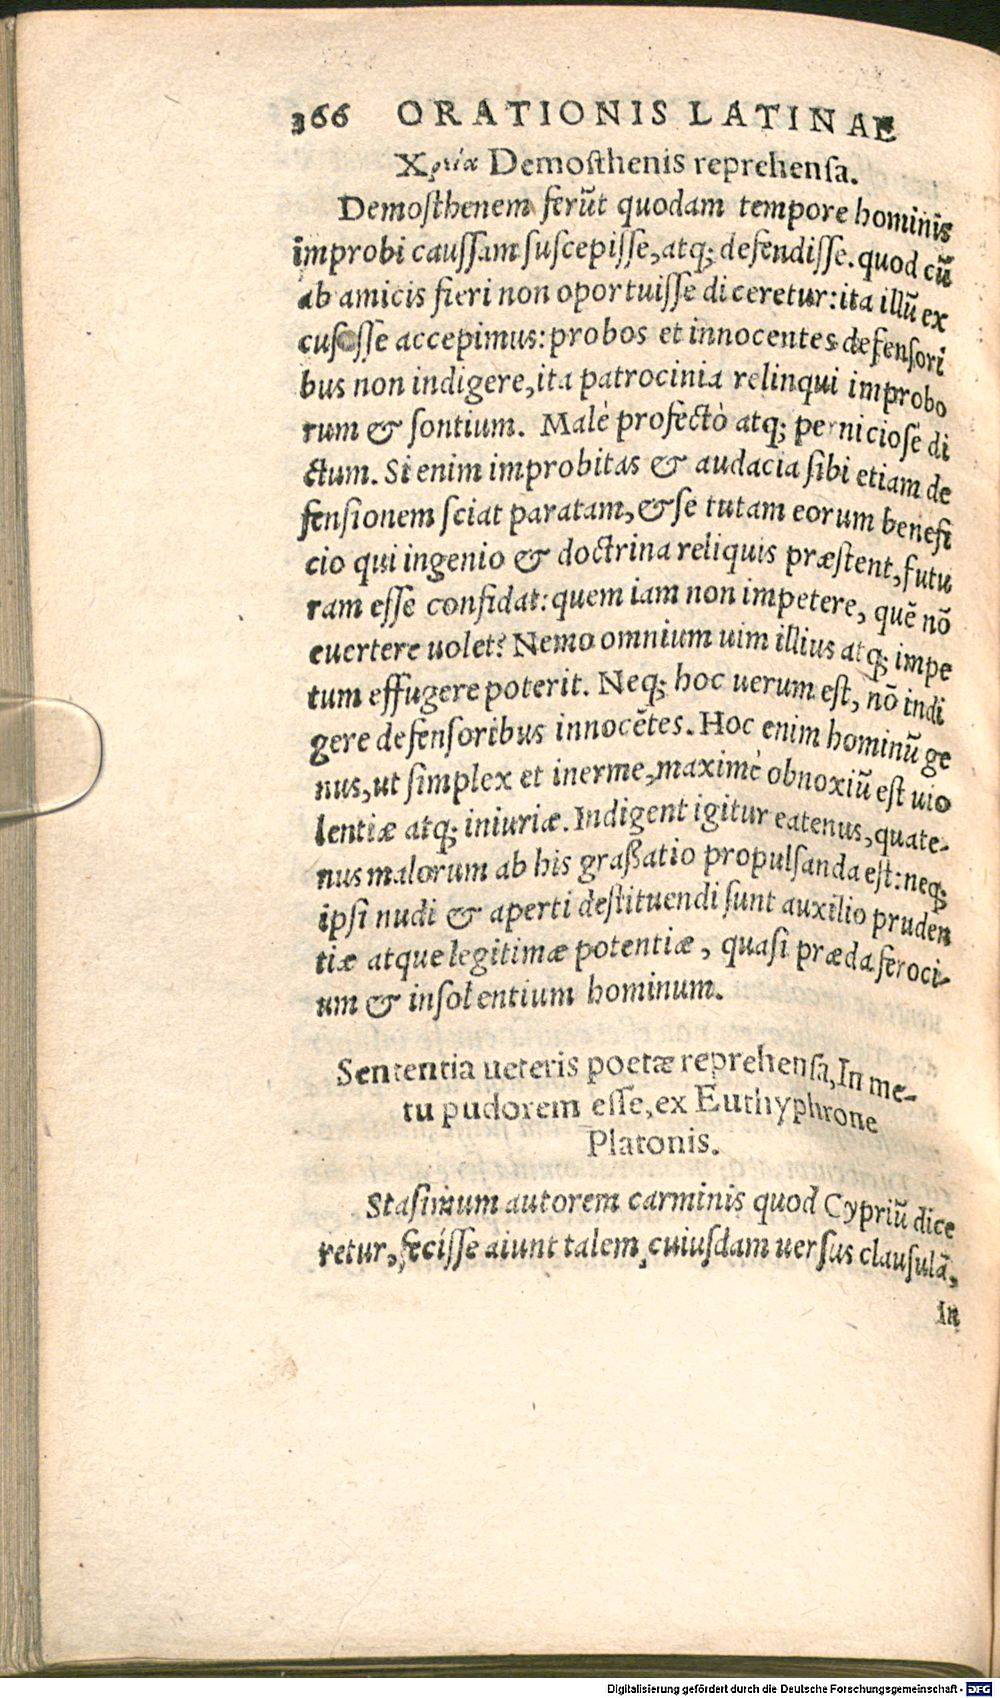 366 ORATIONIS LATINAE
Χρεία Demosthenis reprehensa.
Demosthenem ferũt quodam tempore hominis
improbi caussam suscepisse, atq; defendisse. quod cũ
ab amicis fieri non oportuisse diceretur: ita illũ ex
cusasse accepimus: probos et innocentes defensori
bus non indigere, ita patrocinia relinqui improbo
rum & sontium. Malè profectò atq; perniciosè di
ctum. Si enim improbitas & audacia sibi etiam de
fensionem sciat paratam, & se tutam eorum benefi
cio qui ingenio & doctrina reliquis præstent, futu
ram esse confidat: quem iam non impetere, quẽ nõ
euertere uolet? Nemo omnium uim illius atq; impe
tum effugere poterit. Neq; hoc uerum est, nõ indi
gere defensoribus innocẽtes. Hoc enim hominũ ge
nus, ut simplex et inerme, maximè obnoxiũ est uio
lentiæ atq; iniuriæ. Indigent igitur eatenus, quate-
nus malorum ab his graßatio propulsanda est: neq;
ipsi nudi & aperti destituendi sunt auxilio pruden
tiæ atque legitimæ potentiæ, quasi præda feroci-
um & insolentium hominum.
Sententia ueteris poetæ reprehensa, In me-
tu pudorem esse, ex Euthyphrone
Platonis.
Stasimum autorem carminis quod Cypriũ dice
retur, fecisse aiunt talem cuiusdam uersus clausulã,
In
Digitalisierung gefördert durch die Deutsche Forschungsgemeinschaft - DFG